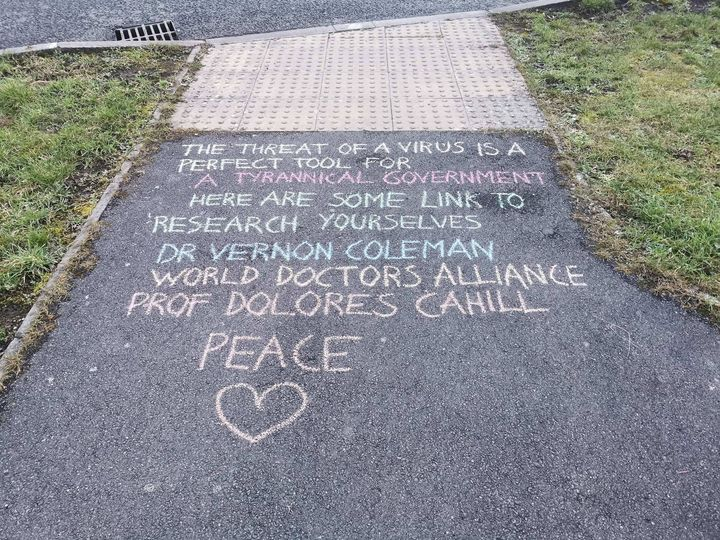 THE THREAT OF A VIRUS IS A
PERFECT TOOL FOR
A TYRANNICAL GOVERNMENT
HERE ARE SOME LINK TO
RESEARCH YOURSELVES
DR VERNON COLEMAN
WORLD DOCTORS ALLIANCE
PROF DOLORES CAHILL
PEACE